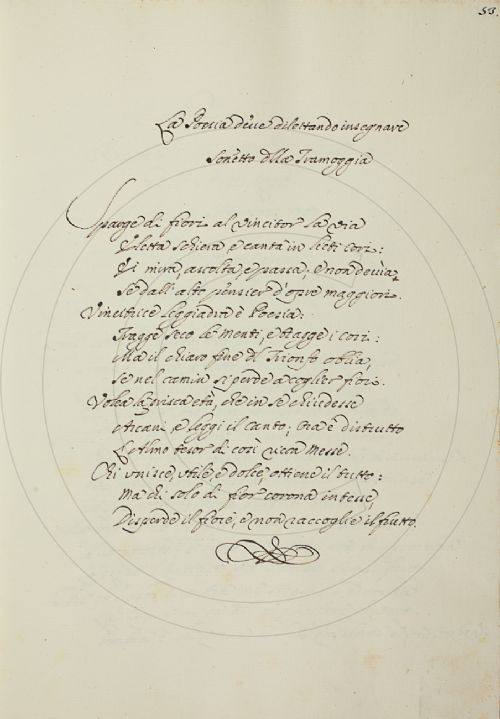 53.
La Poesia deve dilettando insegnare
Sonetto dlla Tramoggia
Sparge di fiori al vincitor la via
Eletta schiera, e canta in lieti cori:
Ei mira, ascolta, e passa; e non devia,
Se dall'alto pensier d'opre maggiori.
Vincitrice leggiadra è Poesia:
Tragge seco le menti, e tragge i cori:
Ma il chiaro fine dl Trionfo oblia,
Se nel camin si perde a coglier fiori.
Volea la prisca età, che in se chiudesse
e leggi il canto; Ora è distrutto
L'almo tesor di così ricca Messe.
Chi unisce, utile, e dolce, ottiene il tutto:
Ma chi solo di fior corona intesse,
Disperde il fiore, e non raccoglie il frutto.